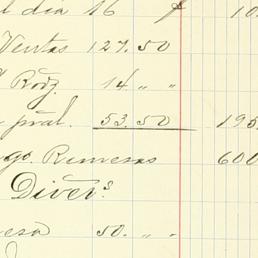 l día 16 $ 10
Ventas 127.50
Rodz. 14 " "
pral. 53.50 195
go. Remesas 600
Divers.
esa 50. " "